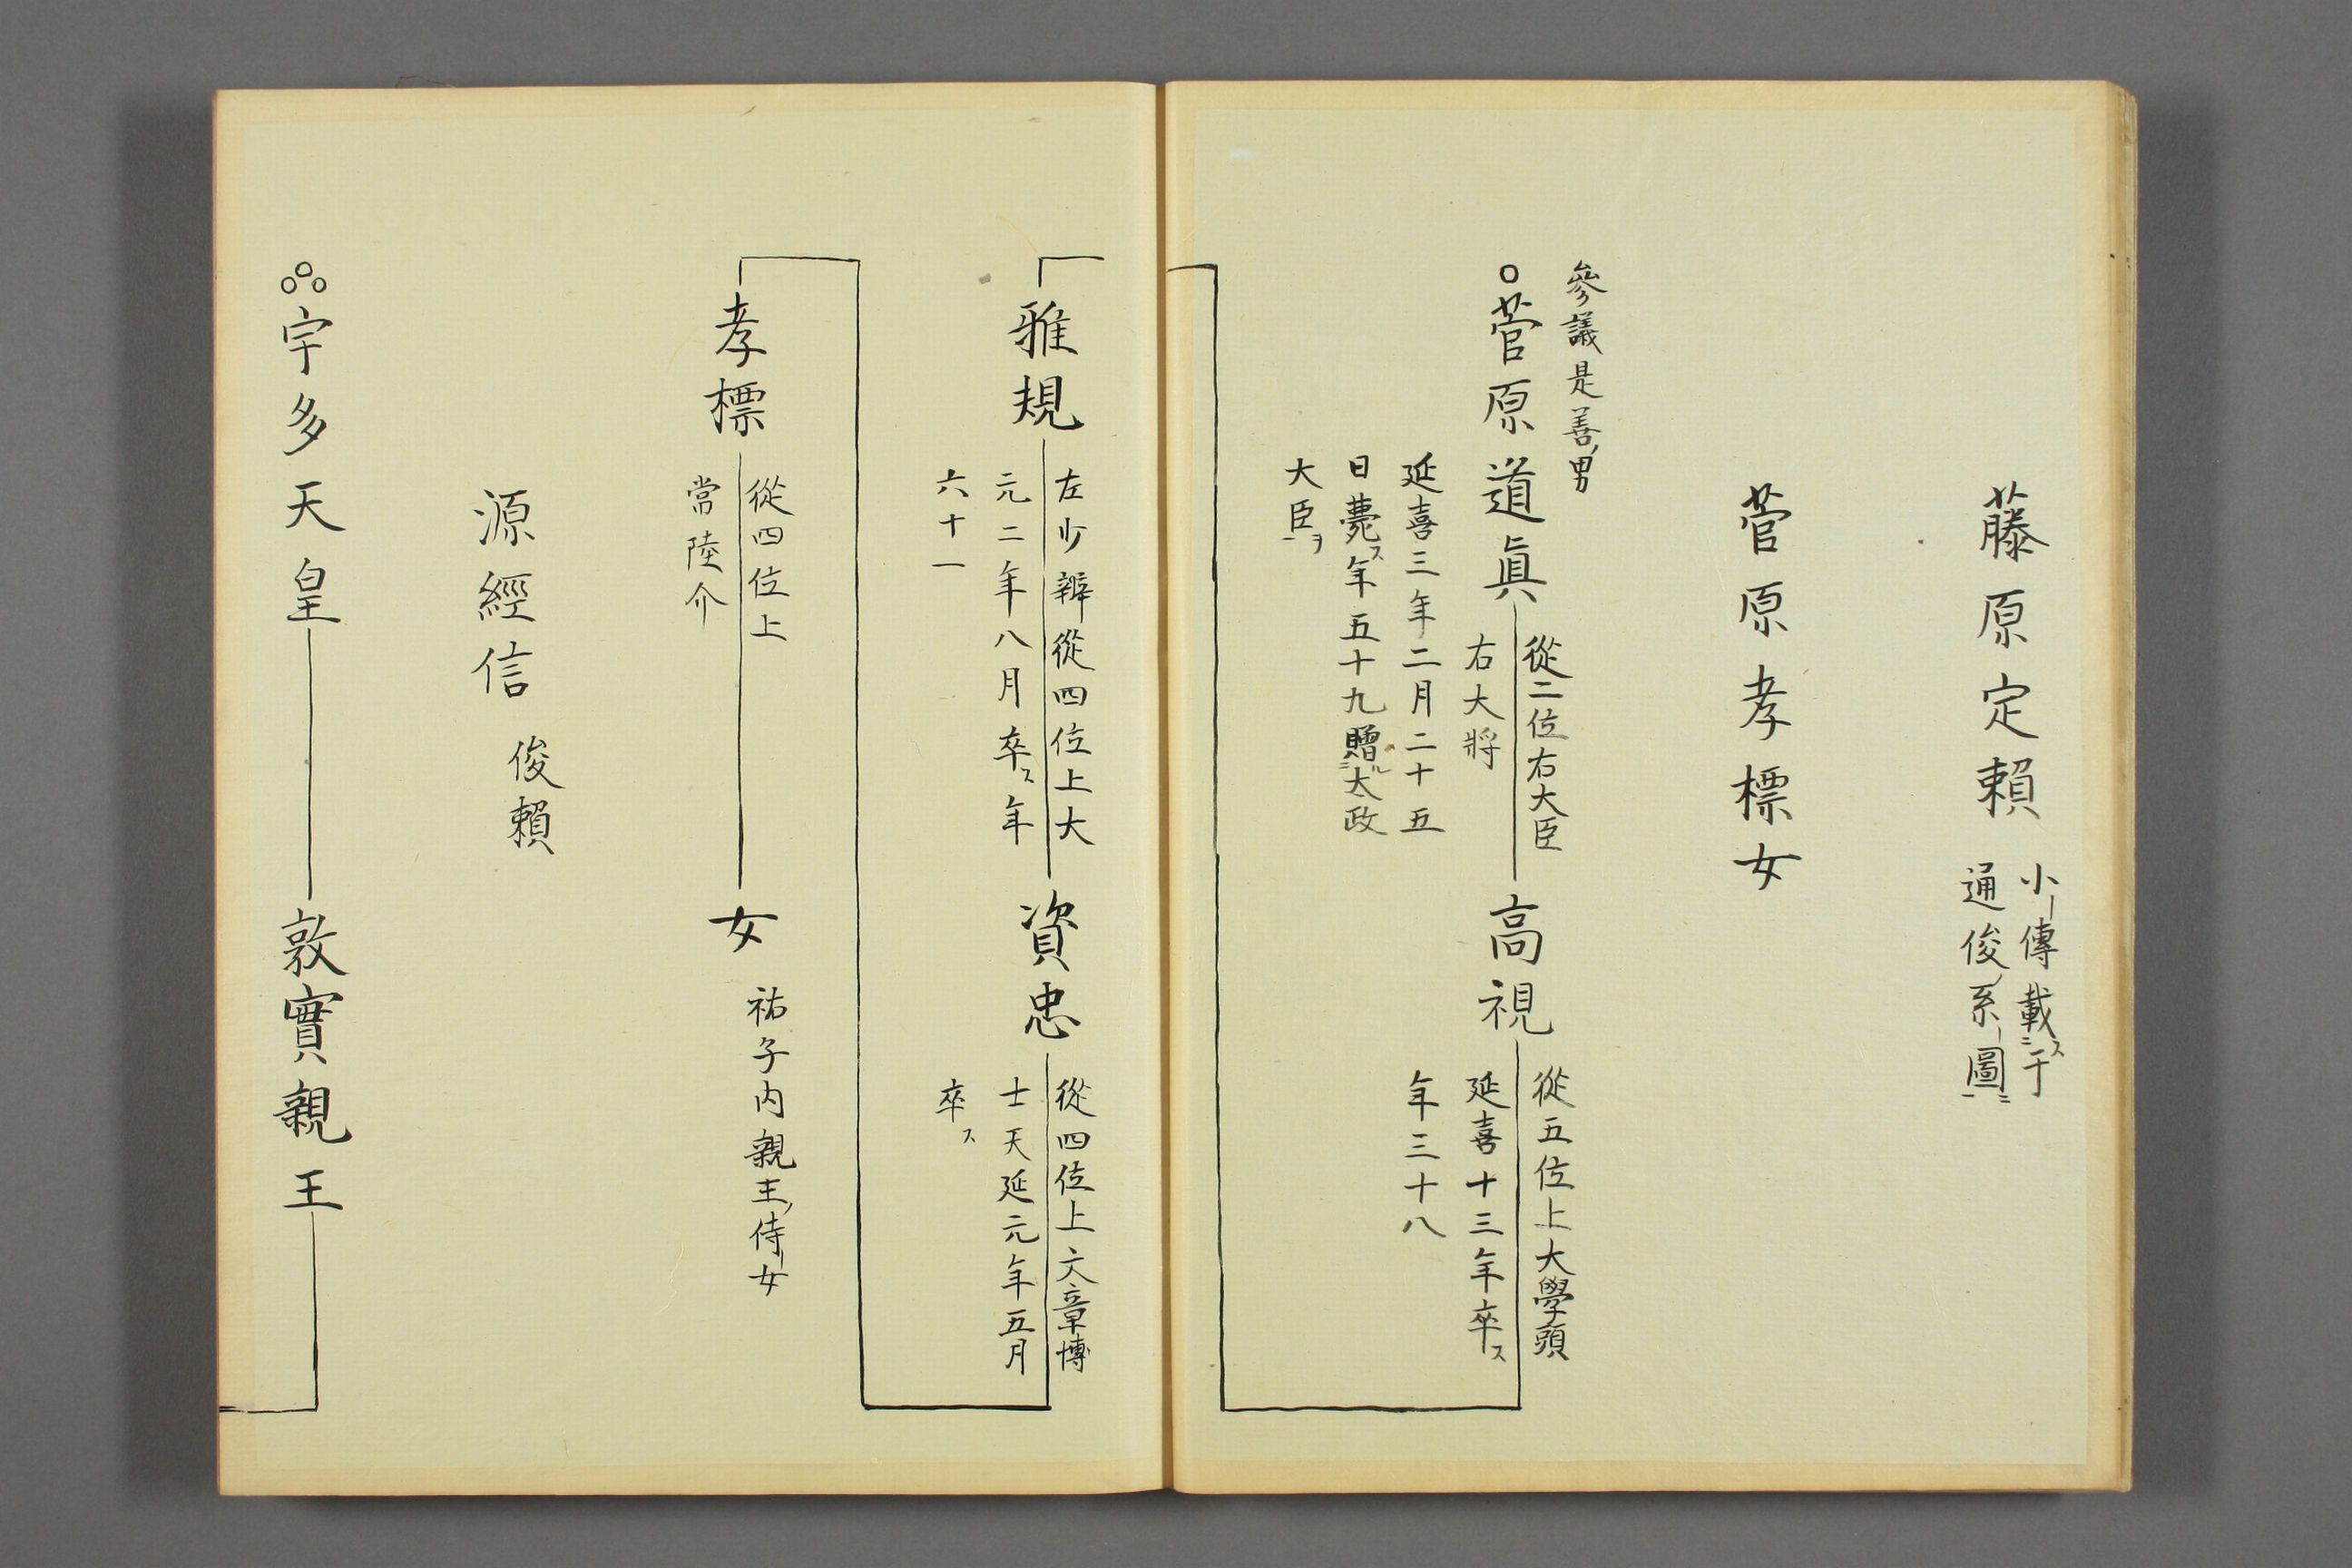 藤原定賴
小傳載ス二于
通俊系圖一ニ
菅原孝標女
參議是善ノ男
○菅原道眞
從二位右大臣
右大將
延喜三年二月二十五
日薨ス年五十九贈ル二太政
大臣一ヲ
高視
從五位上大學頭
延喜十三年卒ス
年三十八
雅規
左少辨從四位上大
元二年八月卒ス年
六十一
資忠
從四位上文章博
士天延元年五月
卒ス
孝標
從四位上
常陸介
女
祐子内親王ノ侍女
源經信
俊賴
宇多天皇
敦實親王